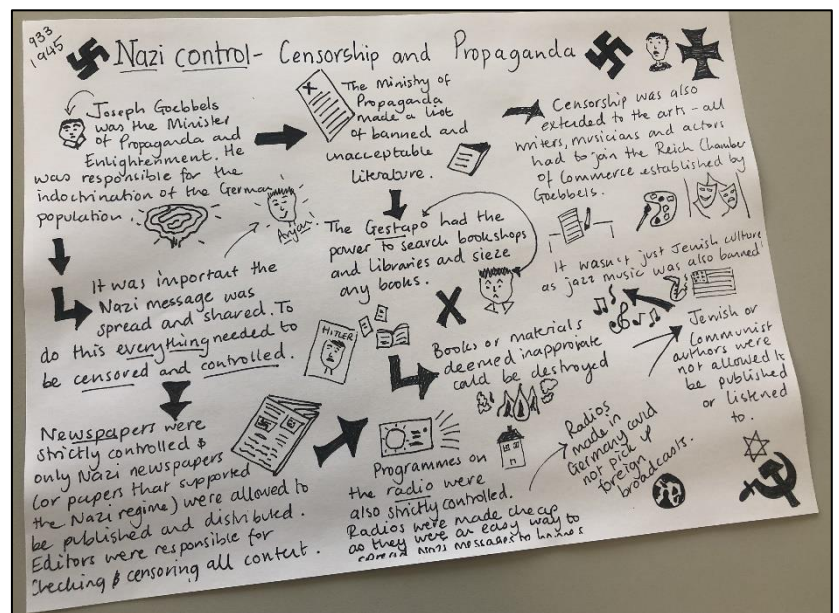 933
1945
Nazi control - Censorship and Propaganda
Joseph Goebbels
was the Minister
of Propaganda and
Enlightenment. He
was responsible for the
indoctrination of the German
population.
Aryan
It was important the
Nazi message was
spread and shared. To
do this everything needed to
be censored and controlled.
Newspapers were
strictly controlled &
only Nazi newspapers
(or papers that supported
the Nazi regime) were allowed to
be published and distributed.
Editors were responsible for
checking & censoring all content.
The Ministry of
Propaganda
made a list
of banned and
unacceptable
literature.
The Gestapo had the
power to search bookshops
and libraries and sieze
any books.
HITLER
Books or materials
deemed inappropriate
could be destroyed
Programmes on
the radio were
also strictly controlled.
Radios were made cheap
as they were an easy way to
spread Nazi messages to homes
Radios
made in
Germany could
not pick up
foreign
broadcasts.
Censorship was also
extended to the arts - all
writers, musicians and actors
had to join the Reich Chamber
of Commerce established by
Goebbels.
It wasn't just Jewish culture
as jazz music was also banned
Jewish or
Communist
authors were
not allowed to
be published
or listened
to.